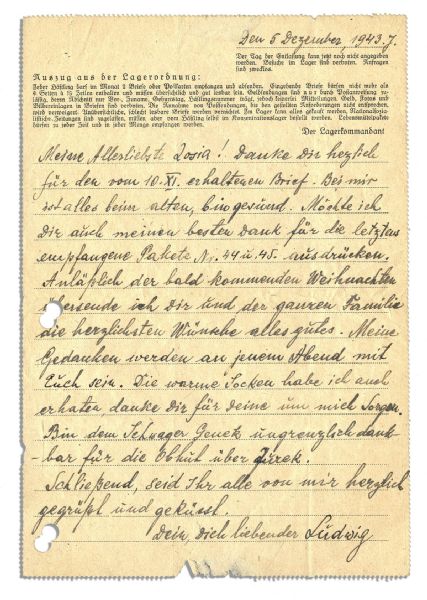 Den 5 Dezember, 1943 J.
Der Tag der Entlassung kann jetzt noch nicht angegeben
werden. Besuche im Lager sind verboten. Anfragen
sind zwecklos.
Auszug aus der Lagerordnung:
Jeder Häftling darf im Monat 2 Briefe oder Postkarten empfangen und absenden. Eingehende Briefe dürfen nicht mehr als
4 Seiten à 15 Zeilen enthalten und müssen übersichtlich und gut lesbar sein. Geldsendungen sind nur durch Postanweisung
zulässig, deren Abschnitt nur Vor-, Zuname, Geburtstag, Häftlingsnummer trägt, jedoch keinerlei Mitteilungen. Geld, Fotos und
Bildereinlagen in Briefen sind verboten. Die Annahme von Postsendungen, die den gestellten Anforderungen nicht entsprechen,
wird verweigert. Unübersichtliche, schlecht lesbare Briefe werden vernichtet. Im Lager kann alles gekauft werden. Nationalsozia-
listische Zeitungen sind zugelassen, müssen aber vom Häftling selbst im Konzentrationslager bestellt werden. Lebensmittelpakete
dürfen zu jeder Zeit und in jeder Menge empfangen werden.
Der Lagerkommandant
Meine Allerliebste Zosia! Danke Dir hezlich
für den vom 10. XI. erhaltenen Brief. Bei mir
ist alles beim alten, bin gesund. Möchte ich
Dir auch meinen besten Dank für die letztens
empfangene Pakete Nr. 44 u. 45. ausdrücken.
Anläßlich der bald kommenden Weihnachten
übersende ich Dir und der ganzen Familie
die herzlichsten Wünsche alles gutes. Meine
Gedanken werden an jenem Abend mit
Euch sein. Die warme Socken habe ich auch
erhaten danke Dir für deine um mich Sorgen.
Bin dem Schwager Genek ungrenzlich dank-
-bar für die Obhut über Jurek.
Schließend, seid Ihr alle von mir herzlich
gegrüßt und geküsst.
Dein, Dich liebender Ludwig